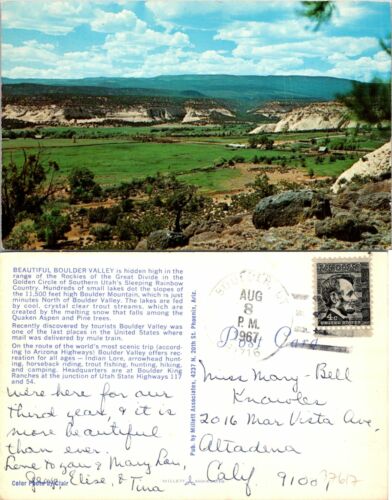 BEAUTIFUL BOULDER VALLEY is hidden high in
the range of the Rockies of the Great Divide in the
Golden Circle of Southern Utah's Sleeping Rainbow
Country. Hundreds of small lakes dot the slopes of
the 11,500 feet high Boulder Mountain, which is just
minutes North of Boulder Valley. The lakes are fed
by cool, crystal clear trout streams, which are
created by the melting snow that falls among the
Quaken Aspen and Pine trees.
Recently discovered by tourists Boulder Valley was
one of the last places in the United States where
mail was delivered by mule train.
On the route of the world's most scenic trip (accord-
ing to Arizona Highways) Boulder Valley offers rec-
reation for all ages - Indian Lore, arrowhead hunt-
ing, horseback riding, trout fishing, hunting, hiking,
and camping. Headquarters are at Boulder King
Ranches at the junction of Utah State Highways 117
and 54.
were here for our
third year, & it is
more beautiful
than ever.
Love to you & Mary Lou,
Elise, & Tina
Color Photo by
Pub. by Millett Associates, 4237 N. 20th St. Phoenix, Ariz.
AUG
8
P.M.
1967
Post Card
UNITED STATES
Miss Mary-Bell
Knowles
2016 Mar Vista Ave,
Altadena
Calif. 9100,
37617